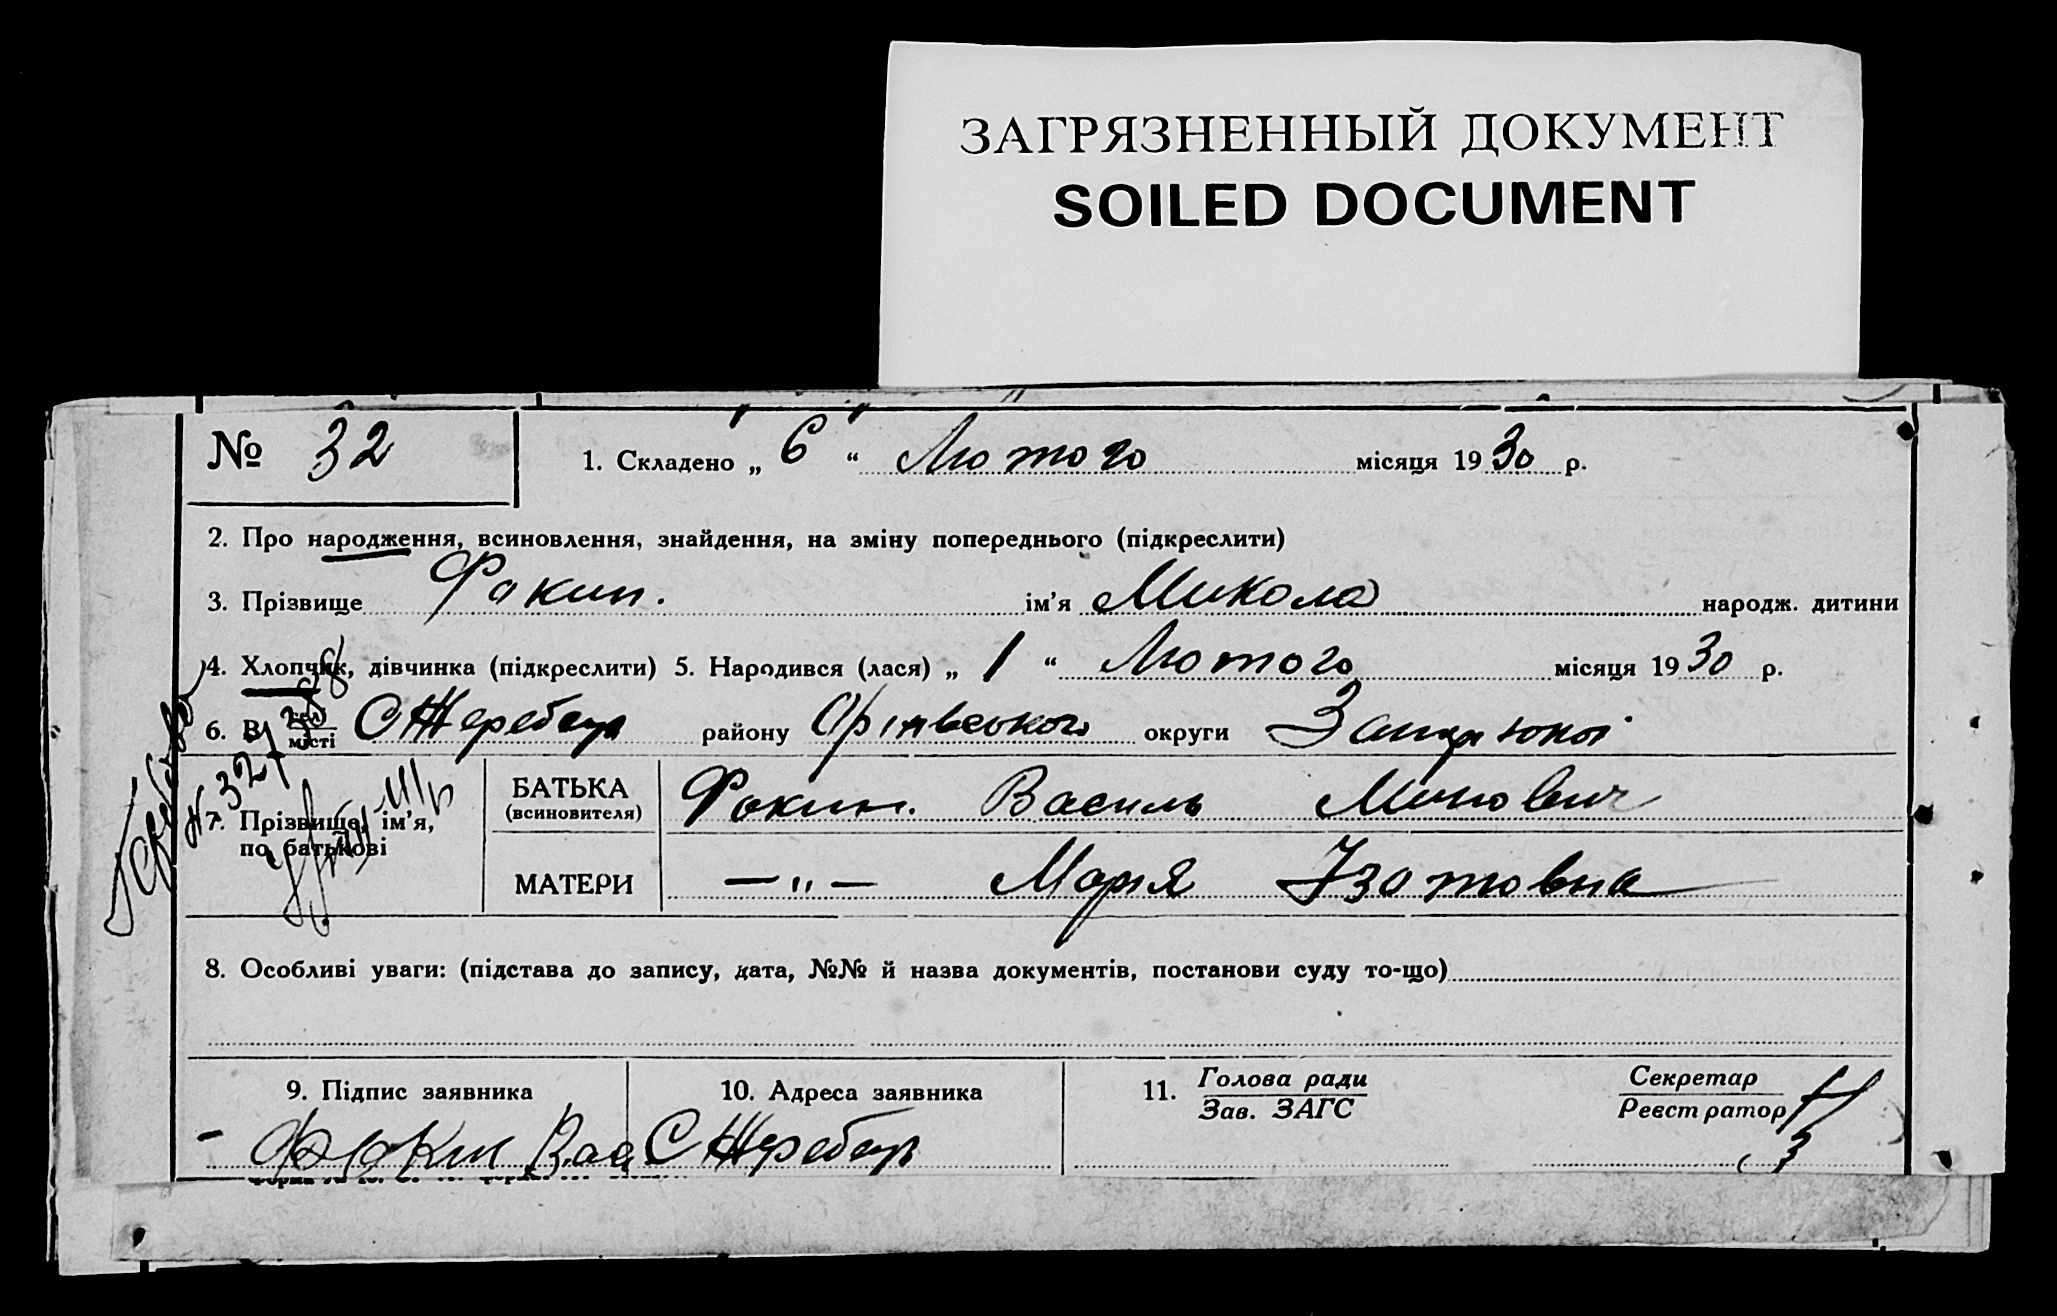 ЗАГРЯЗНЕННЫЙ ДОКУМЕНТ
SOILED DOCUMENT
№ 32
1. Складено „ 6 “ Лютого місяця 1930 р.
2. Про народження, всиновлення, знайдення, на зміну попереднього (підкреслити)
3. Прізвище Фокин. ім’я Микола народж. дитини
4. Хлопчик, дівчинка (підкреслити) 5. Народився (лася) „ 1 “ Лютого місяця 1930 р.
6. В селі місті С Жеребець району Оріхівського округи
7. Прізвище, ім’я, по батькові
БАТЬКА (всиновителя) Фокин. Василь
МАТЕРИ —„— Марія Ізотовна
8. Особливі уваги: (підстава до запису, дата, №№ й назва документів, постанови суду то-що)
9. Підпис заявника
10. Адреса заявника
11. Голова ради
Зав. ЗАГС
Секретар
Реєстратор
Фокин Вас
С Жеребець